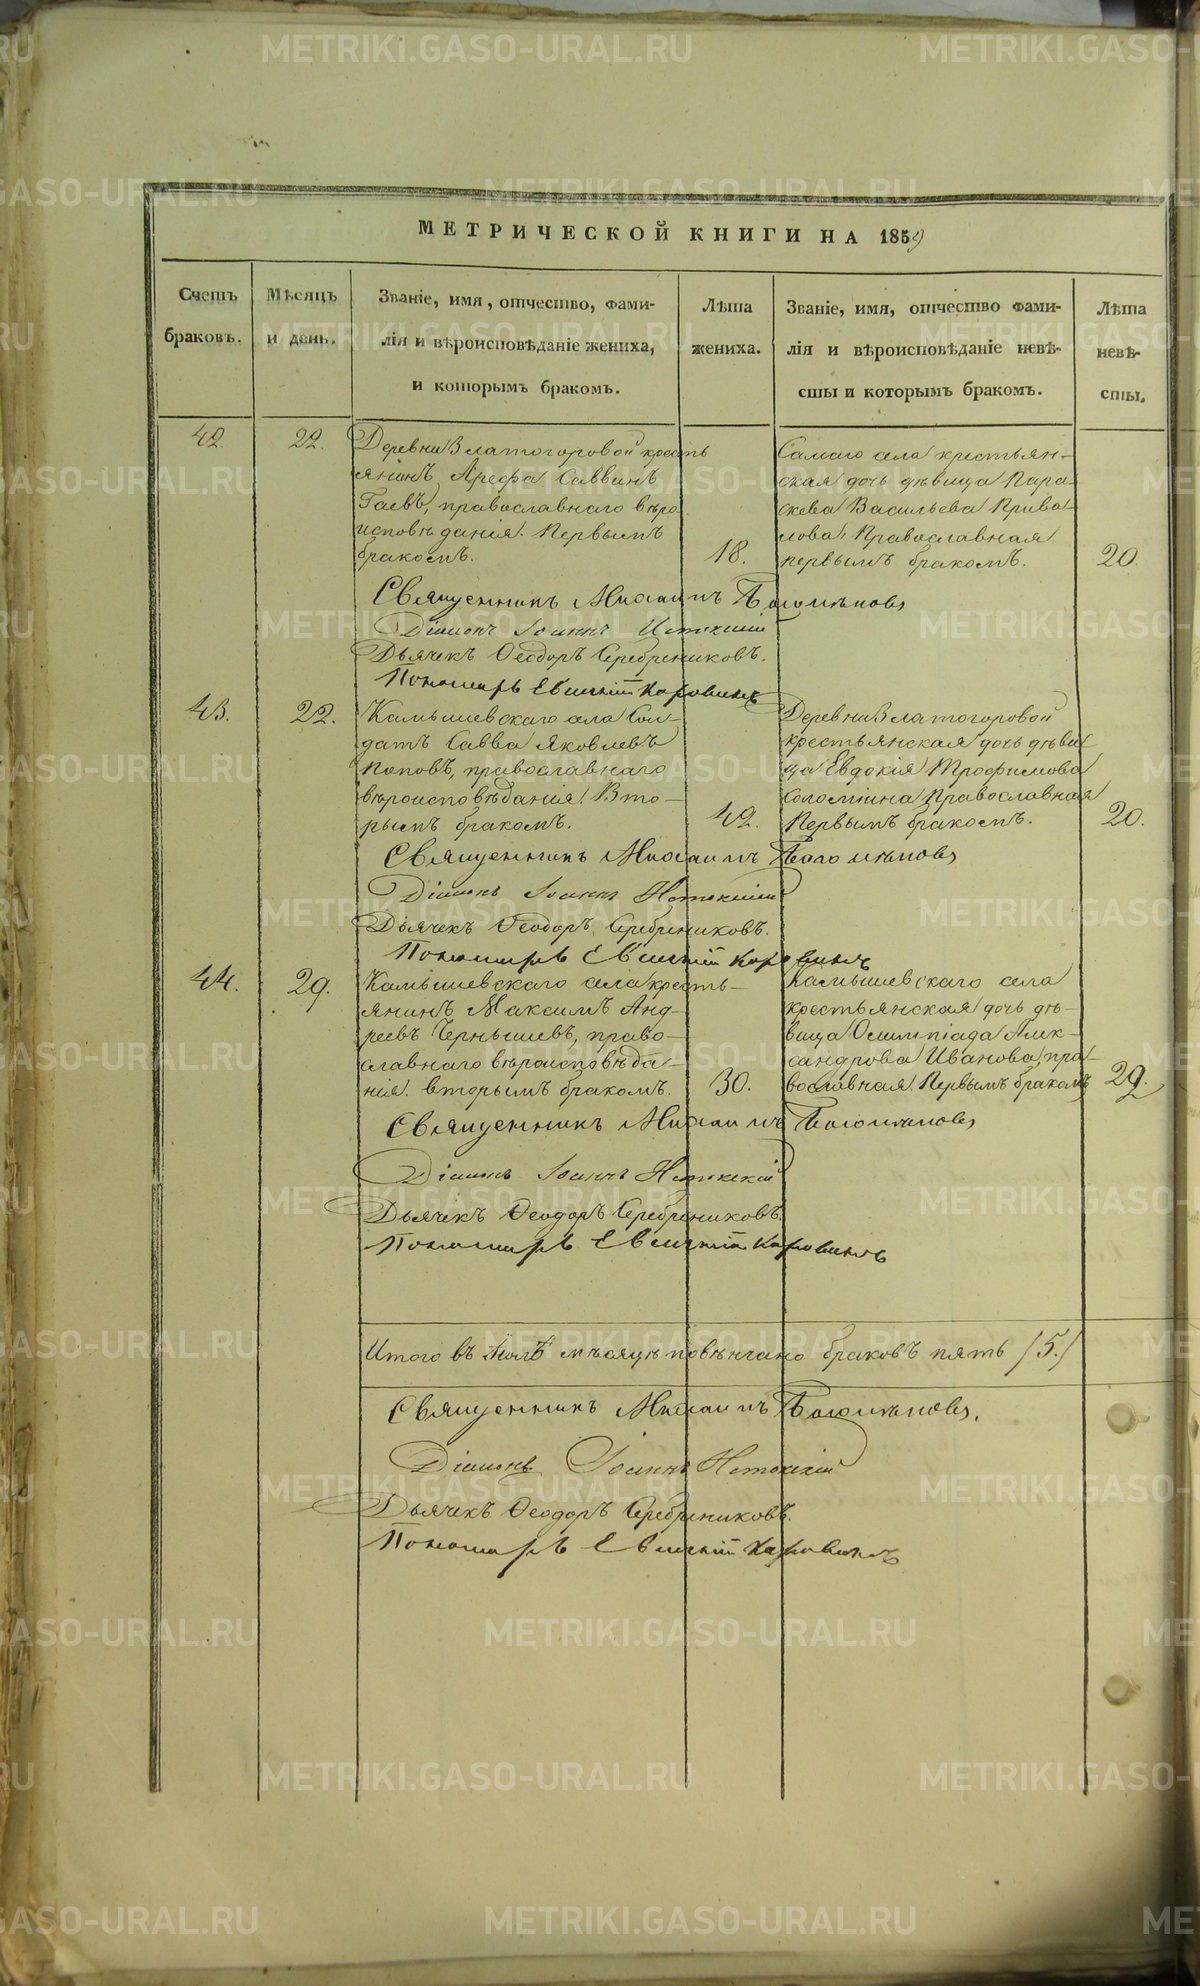 МЕТРИЧЕСКОЙ КНИГИ НА 1859
Счетъ браковъ.
Мѣсяцъ и день.
Званіе, имя, отчество, фамилія и вѣроисповѣданіе жениха, и которымъ бракомъ.
Лѣта жениха.
Званіе, имя, отчество фамилія и вѣроисповѣданіе невѣсты и которымъ бракомъ.
Лѣта невѣсты.
42. 22.
Деревни Златогоровой кресть
янинъ Арефа Саввинъ
Гаевъ, православнаго вѣро
исповѣданія. Первымъ
бракомъ.
18.
Самаго села крестьян-
ская дочь дѣвица Пара-
скева Васильева Прива
лова, Православная
первымъ бракомъ.
20.
Священникъ Михаилъ
Діаконъ Іоаннъ
Дьячекъ Ѳеодоръ Серебрениковъ.
Пономарь Евгеній Коровинъ
43. 22.
Камышевскаго села Сол-
датъ Савва Яковлевъ
Поповъ, православнаго
вѣроисповѣданія. Вто-
рымъ бракомъ.
42.
Деревни Златогоровой
крестьянская дочь дѣви
ца Евдокія Трофимова
Соломина Православная
Первымъ бракомъ.
20.
Священникъ Михаилъ
Діаконъ Іоаннъ
Дьячекъ Ѳеодоръ Серебрениковъ.
Пономарь Евгеній Коровинъ
44. 29.
Камышевскаго села кресть-
янинъ Максимъ Анд-
реевъ Чернышевъ, право-
славнаго вѣроисповѣда-
нія. вторымъ бракомъ.
30.
Камышевскаго села
крестьянская дочь дѣ-
вица Олимпіада Алек-
сандрова Иванова, пра-
вославная. Первымъ бракомъ
29.
Священникъ Михаилъ
Діаконъ Іоаннъ
Дьячекъ Ѳеодоръ Серебрениковъ.
Пономарь Евгеній Коровинъ
Итого въ Іюлѣ мѣсяцѣ повѣнчано браковъ пять /5./
Священникъ Михаилъ
Діаконъ Іоаннъ
Дьячекъ Ѳеодоръ Серебрениковъ.
Пономарь Евгеній Коровинъ
METRIKI.GASO-URAL.RU